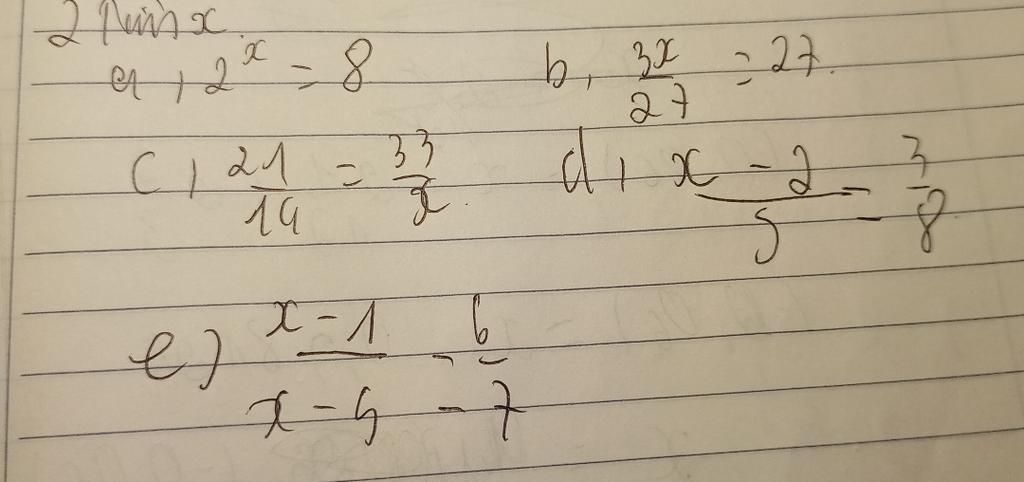 2 Tìm x.
a, 2^x = 8 b, 3x/27 = 27.
c, 21/14 = 33/x. d, x - 2/5 = 3/8.
e) x - 1/x - 5 = 6/7